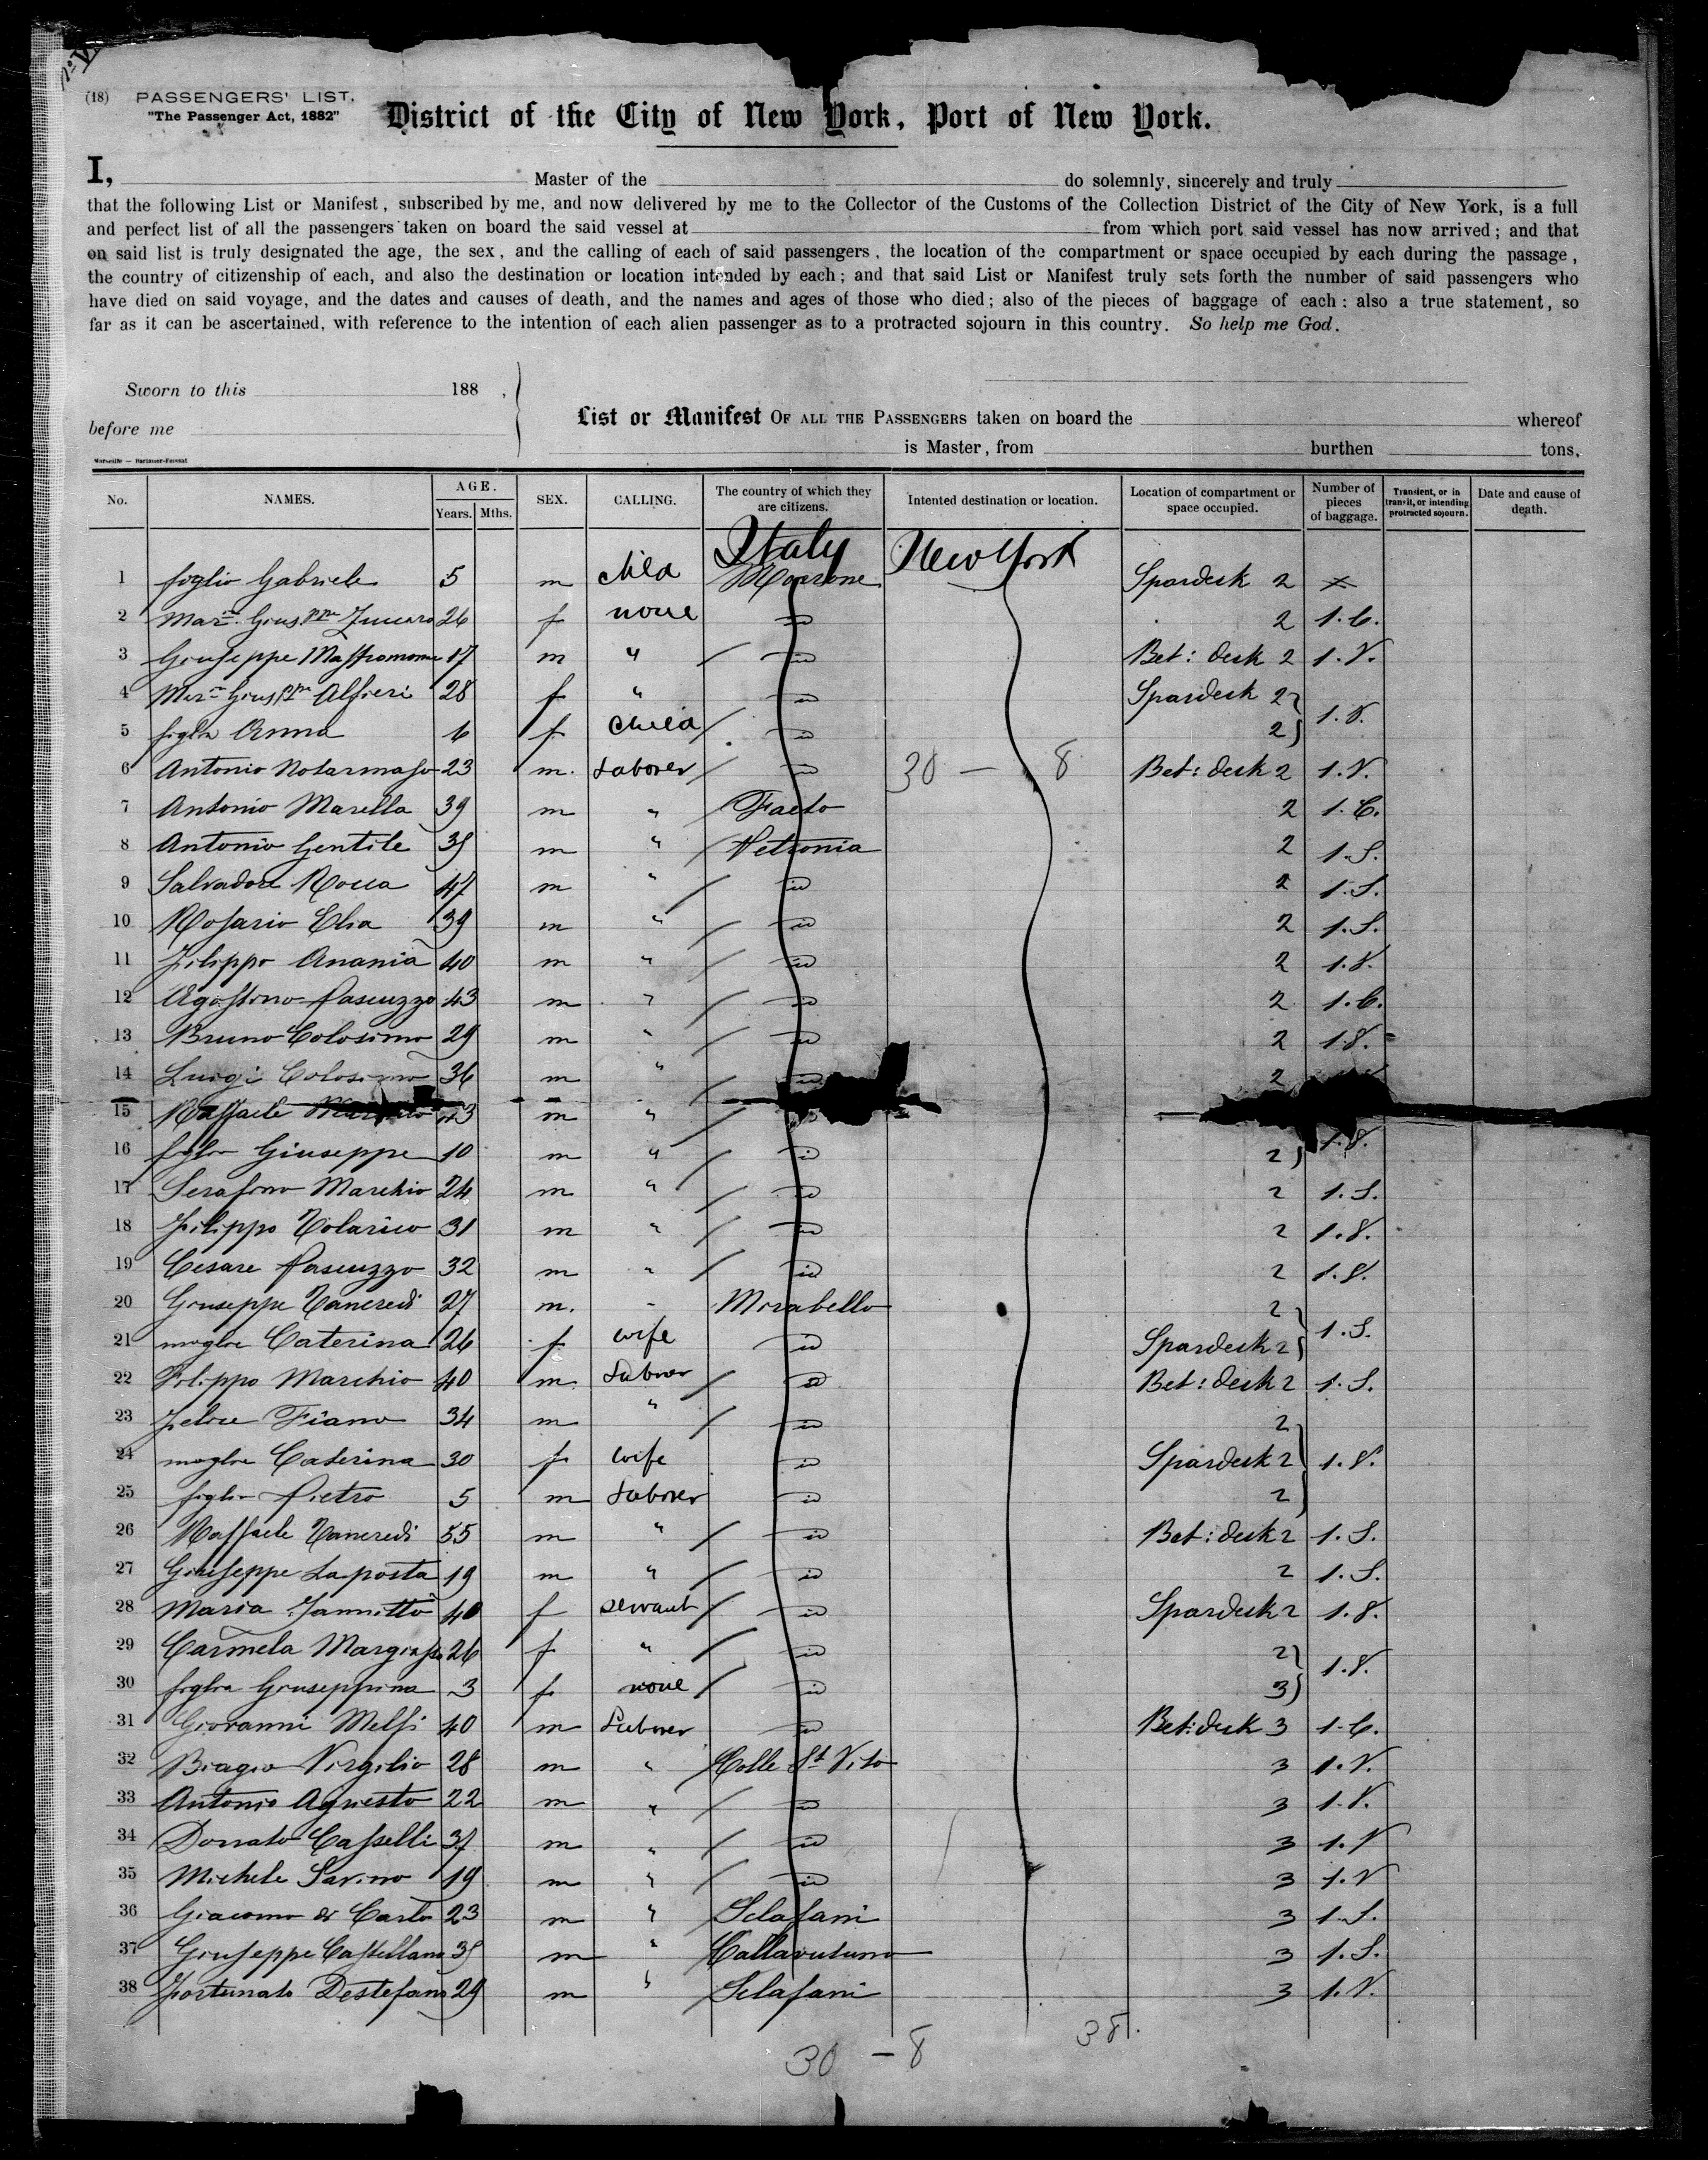 (18) PASSENGERS' LIST.
"The Passenger Act, 1882"
District of the City of New York, Port of New York.
I, Master of the do solemnly, sincerely and truly
that the following List or Manifest, subscribed by me, and now delivered by me to the Collector of the Customs of the Collection District of the City of New York, is a full
and perfect list of all the passengers taken on board the said vessel at from which port said vessel has now arrived; and that
on said list is truly designated the age, the sex, and the calling of each of said passengers, the location of the compartment or space occupied by each during the passage,
the country of citizenship of each, and also the destination or location intended by each; and that said List or Manifest truly sets forth the number of said passengers who
have died on said voyage, and the dates and causes of death, and the names and ages of those who died; also of the pieces of baggage of each: also a true statement, so
far as it can be ascertained, with reference to the intention of each alien passenger as to a protracted sojourn in this country. So help me God.
Sworn to this 188 ,
before me
List or Manifest OF ALL THE PASSENGERS taken on board the whereof
is Master, from burthen tons,
No. NAMES. AGE. Years. Mths. SEX. CALLING. The country of which they are citizens. Intented destination or location. Location of compartment or space occupied. Number of pieces of baggage. Transient, or in transit, or intending protracted sojourn. Date and cause of death.
Italy New York
1 figlio Gabriele 5 m child Spardeck 2 x
2 26 f none id 2 1.C.
3 Giuseppe 17 m " id Bet: deck 2 1.V.
4 Alfieri 28 f " id Spardeck 2
5 figlia Anna 6 f child id 2 1.V.
6 Antonio 23 m. Laborer id 30 — 8 Bet: deck 2 1.V.
7 Antonio Marella 39 m " Faeto 2 1.C.
8 Antonio Gentile 35 m " Petronia 2 1.S.
9 Salvadore Rocca 47 m " id 2 1.S.
10 Rosario Elia 39 m " id 2 1.S.
11 Filippo Anania 40 m " id 2 1.V.
12 Agostino Pascuzzo 43 m " id 2 1.C.
13 Bruno Colosimo 29 m " id 2 1.8.
14 Luigi Colosimo 36 m " id 2
15 Raffaele 43 m "
16 figlio Giuseppe 10 m " id 2 1.8.
17 Serafino Marchio 24 m " id 2 1.S.
18 Filippo Tolarico 31 m " id 2 1.8.
19 Cesare Pascuzzo 32 m " id 2 1.8.
20 Giuseppe Tancredi 27 m. " Mirabello 2
21 moglie Caterina 26 f wife id Spardeck 2 1.S.
22 Filippo Marchio 40 m Laborer id Bet: deck 2 1.S.
23 Felice Fiano 34 m " id 2
24 moglie Caterina 30 f wife id Spardeck 2 1.8.
25 figlio Pietro 5 m Laborer id 2
26 Raffaele Tancredi 55 m " id Bet: deck 2 1.S.
27 Giuseppe Laposta 19 m " id 2 1.S.
28 Maria Iannitto 40 f servant id Spardeck 2 1.8.
29 Carmela 26 f " id 2
30 figlia Giuseppina 3 f none id 3 1.V.
31 Giovanni Melfi 40 m Laborer id Bet: deck 3 1.C.
32 Biagio Virgilio 28 m " Colle St Vito 3 1.V.
33 Antonio Agriesto 22 m " id 3 1.V.
34 Donato Casselli 37 m " id 3 1.V
35 Michele Savino 19 m " id 3 1.V
36 Giacomo di Carlo 23 m " Sclafani 3 1.S.
37 Giuseppe Castellano 35 m " Callavuturo 3 1.S.
38 Fortunato Destefano 29 m " Sclafani 3 1.V.
30 — 8 38.